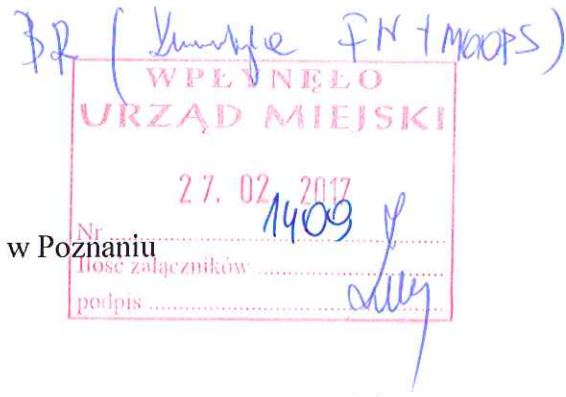 BR ( FN + MOOPS)
WPŁYNĘŁO
URZĄD MIEJSKI
27. 02. 2017
Nr 1409
w Poznaniu
Ilość załączników
podpis